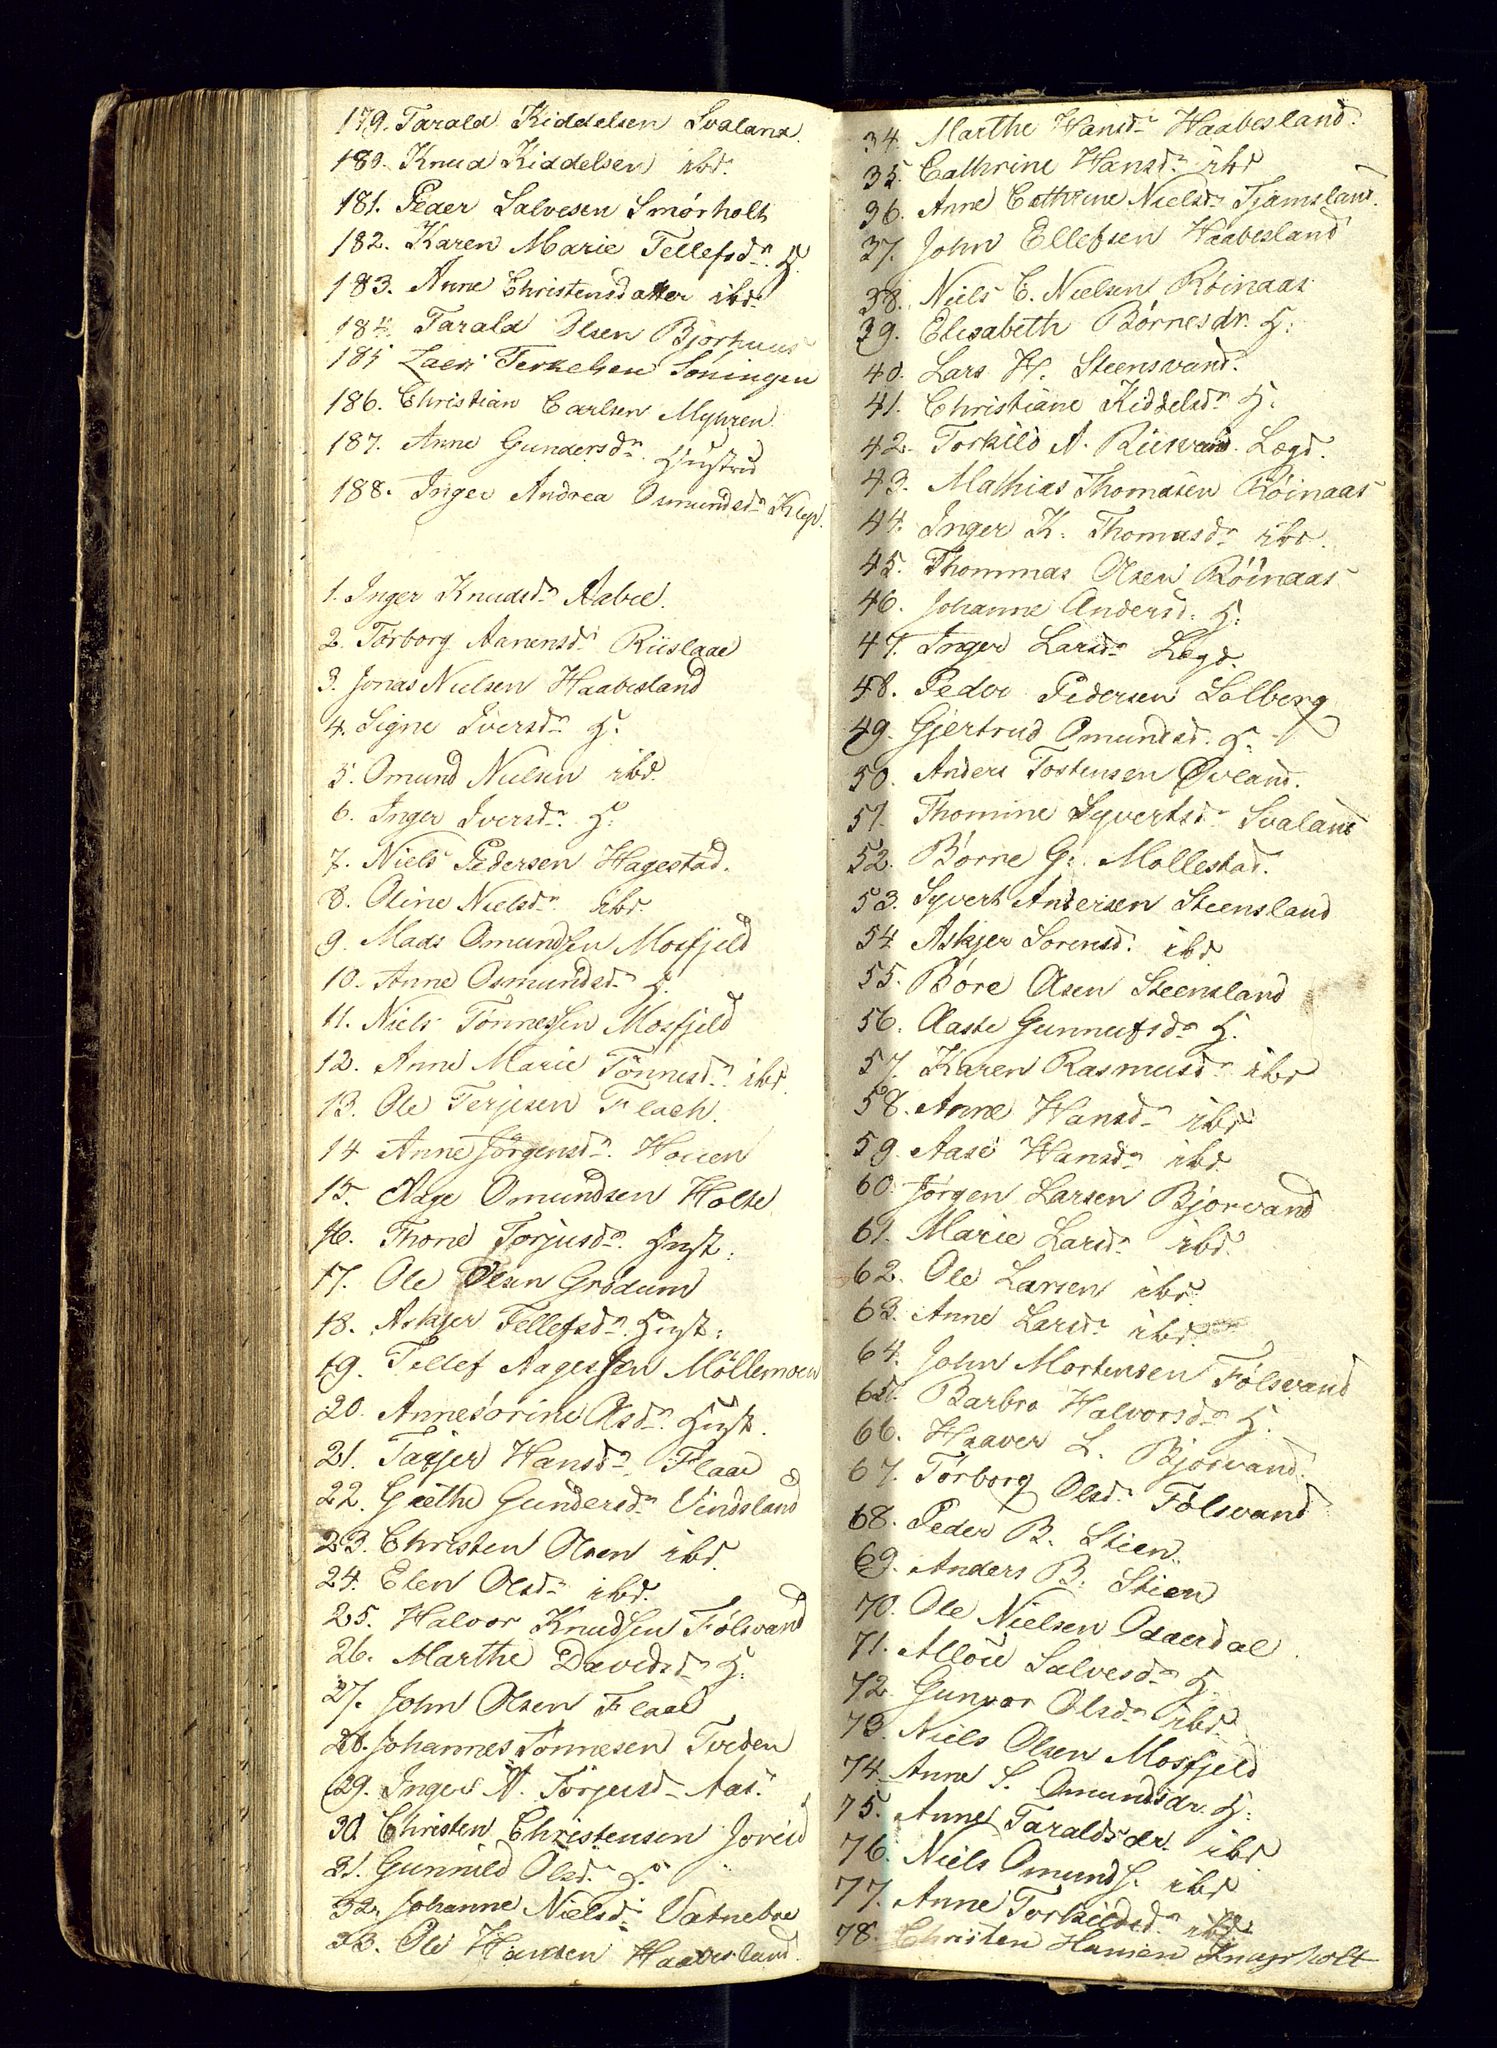 179. Tarald Kiddelsen Svaland
180. Knud Kiddelsen ibd.
181. Peder Salvesen Smørholt
182. Karen Marie Tellefsd. H.
183. Anne Christensdatter ibd.
184. Tarald Olsen Bjorhuus
185 Terkelsen Soningen
186. Christian Carlsen Myhren
187. Anne Gundersdr Hustrue
188. Inger Andrea Osmundsdr Klep.
1. Inger Knudsdr Aabøe.
2. Torborg Aanensdr Riislaae
3. Jonas Nielsen Haabesland
4. Signe Iversdr H.
5. Omund Nielsen ibd.
6. Inger Iversdr H.
7. Niels Pedersen Hagestad.
8. Oline Nielsdr ibd.
9. Mads Omundsen Mosfjeld
10. Anne Osmundsdr H.
11. Niels Tønnessen Mosfjeld
12. Anne Marie Tönnesdr ibd.
13. Ole Terjesen Flach.
14 Anne Jörgensdr Houen
15. Aage Omundsen Holte
16. Thone Torjusdr Hust:
17. Ole Olsen Grødum
18. Askjer Tellefsdr Hust:
19. Tellef Aagessen Möllemoen
20. Annesörine Olsdr Hust.
21. Taajer Hansdr Flaae
22. Grethe Gundersdr Vindsland
23. Christen Olsen ibd.
24. Elen Olsdr ibd.
25. Halvor Knudsen Fölsvand
26. Marthe Davidsdr H.
27. John Olsen Flaae
28. Johannes Tønnesen Tveden
29. Inger N. Törjeusdr Aas.
30. Christen Christensen Joreid
31. Gunnild Olsdr H.
32. Johanne Nielsdr Vatneboe
33. Ole Hansen Haabesland.
34. Marthe Hansdr Haabesland.
35. Cathrine Hansdr ibd
36. Anne Cathrine Nielsdr Tjamsland.
37. John Ellefsen Haabesland
38. Niels C. Nielsen Röinaas
39. Elisabeth Børnesdr. H.
40. Lars H. Steensvand.
41. Christiane Kiddelsdr H.
42. Torkild A. Riisvand. Lægd.
43. Mathias Thomasen Röinaas
44. Inger K. Thomasdr ibd.
45. Thommas Olsen Röinaas
46. Johanne Andersd. H.
47. Inger Larsdr Lægd.
48. Peder Pedersen Solberg
49. Gjertrud Omundsd. H.
50. Anders Tostensen Øvland.
51. Thomine Syvertsdr Svaland
52. Børne G. Mollestad.
53. Syvert Andersen Steensland
54. Askjer Sorensd. ibd
55. Børe Olsen Steensland
56. Aaste Gunnufsdr H.
57. Karen Rasmusdr ibd
58. Anne Hansdr ibd
59. Aase Hansdr ibd
60. Jørgen Larsen Bjorvand
61. Marie Larsdr ibd.
62. Ole Larsen ibd.
63. Anne Larsdr ibd.
64. John Mortensen Fölsvand
65. Barbro Halvorsdr H.
66. Haaver L. Bjorvand.
67. Torborg Olsdr Fölsvand
68. Peder B. Stien.
69. Anders B. Stien
70. Ole Nielsen Odderdal
71. Allöu Salvesdr H.
72. Gunvor Olsdr ibd.
73. Niels Olsen Mosfjeld
74. Anne S. Omundsdr. H.
75. Anne Taraldsdr. ibd.
76. Niels Omunds. ibd
77. Anne Torkildsdr ibd.
78. Christen Hansen Knapholt